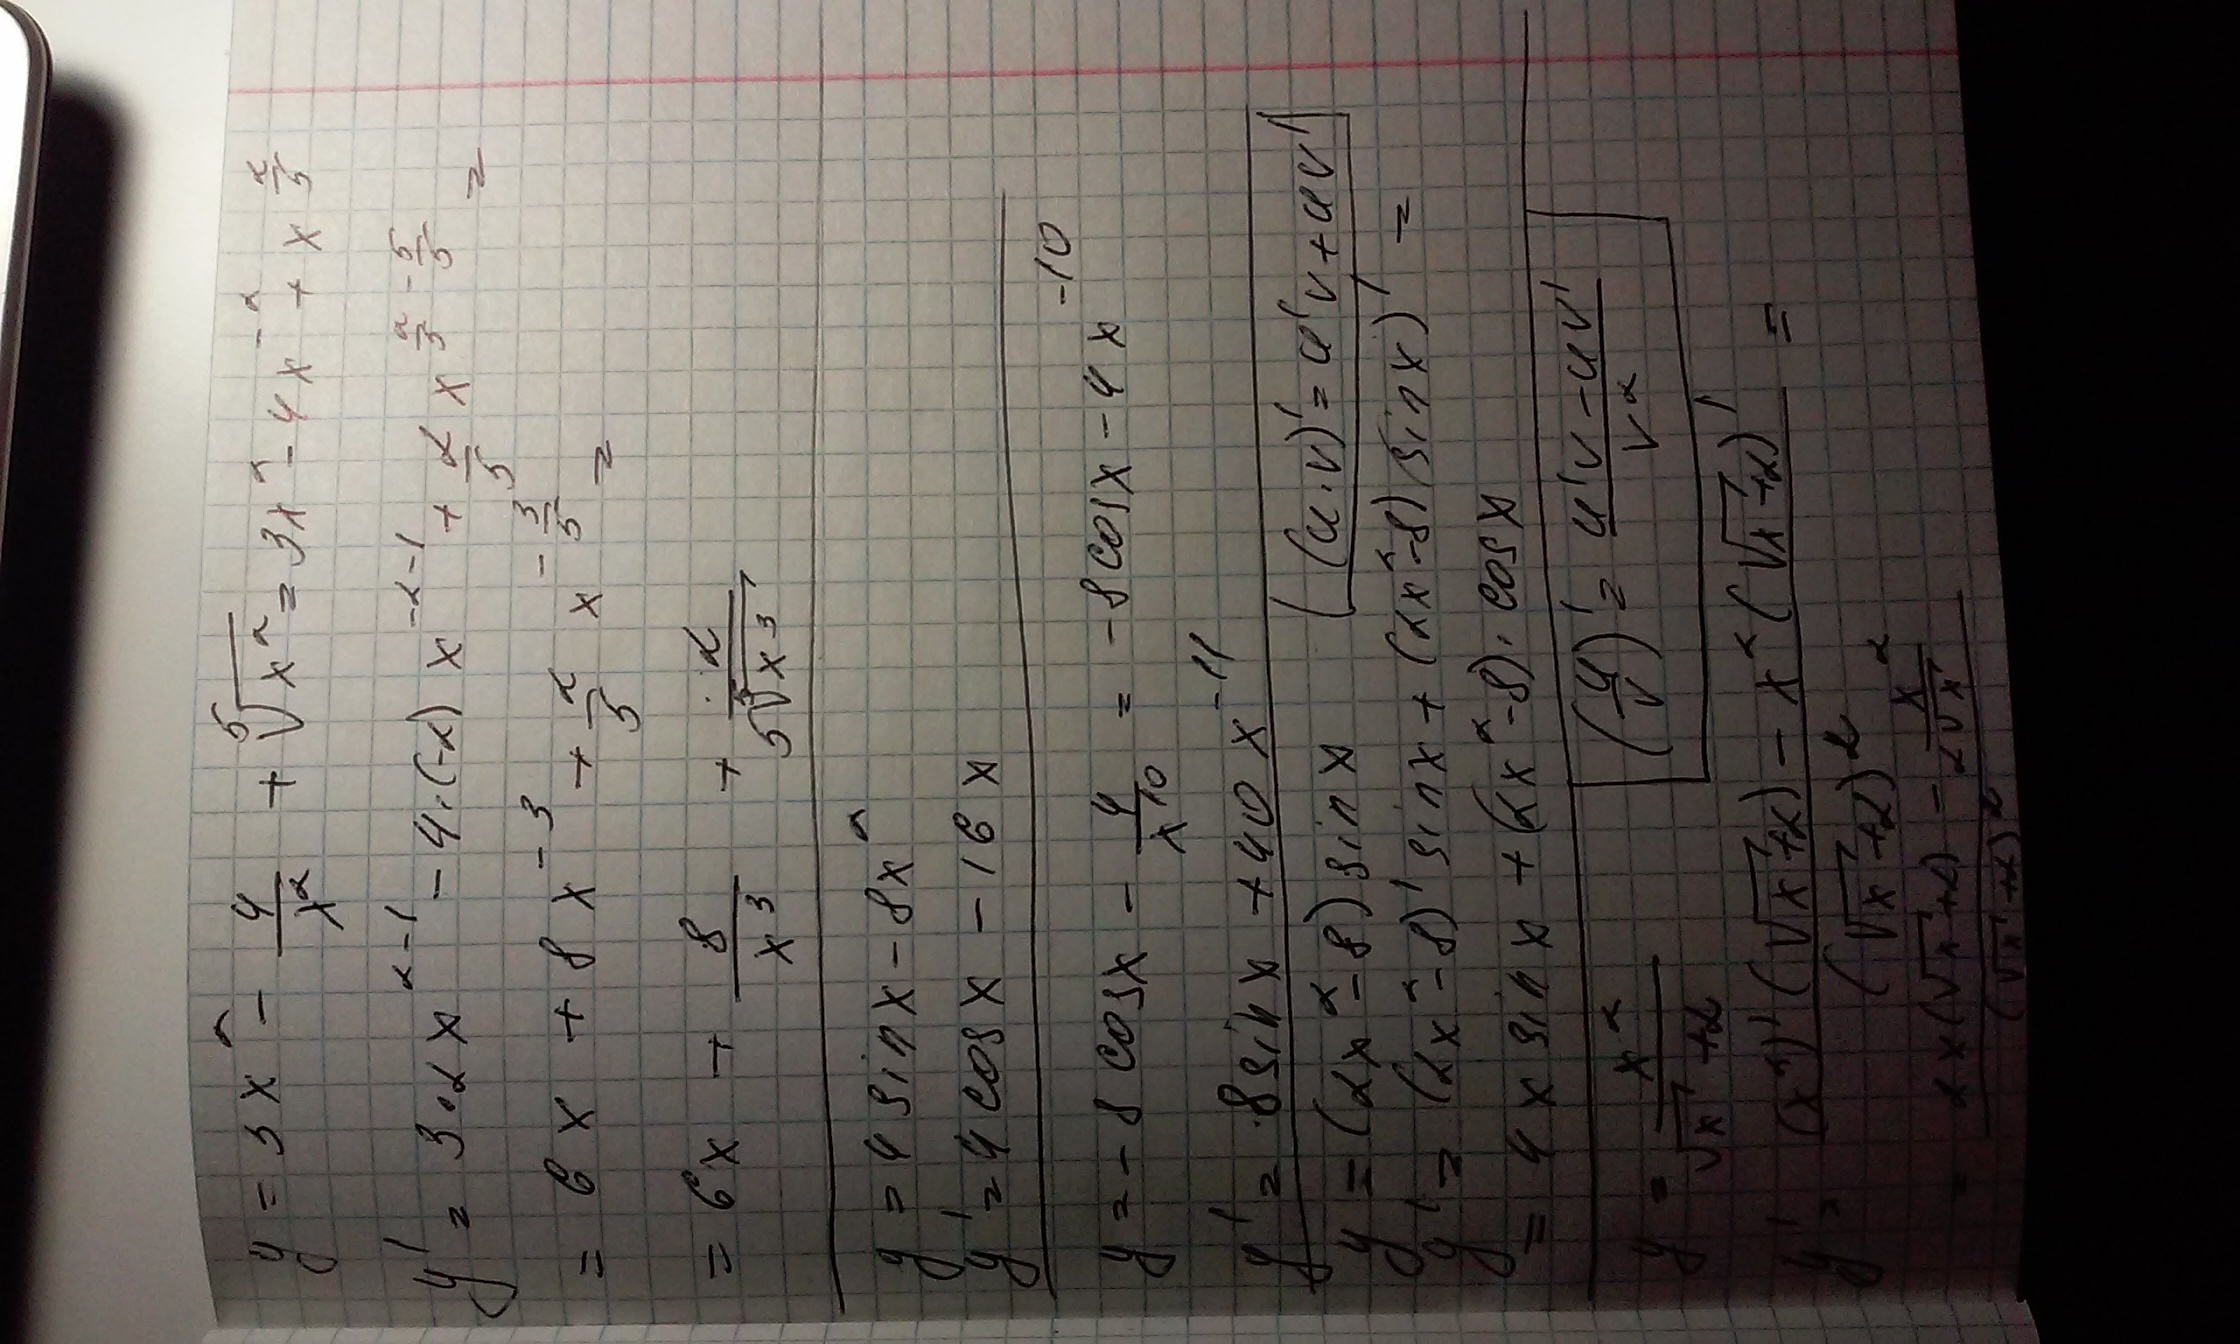 y = 3x² - 4/x² + ⁵√x² = 3x² - 4x⁻² + x^(2/5)
y' = 3·2x²⁻¹ - 4·(-2)x⁻²⁻¹ + 2/5 x^(2/5 - 5/5) =
= 6x + 8x⁻³ + 2/5 x^(-3/5) =
= 6x + 8/x³ + 2/(5 ⁵√x³)
y = 4 sin x - 8x²
y' = 4 cos x - 16x
y = -8 cos x - 4/x¹⁰ = -8 cos x - 4x⁻¹⁰
y' = 8 sin x + 40x⁻¹¹
(u·v)' = u'v + uv'
y = (2x² - 8) sin x
y' = (2x² - 8)' sin x + (2x² - 8)(sin x)' =
= 4x sin x + (2x² - 8)·cos x
(u/v)' = (u'v - uv')/v²
y = x²/(√x + 2)
y' = ((x²)'(√x + 2) - x²(√x + 2)')/(√x + 2)² =
= (2x(√x + 2) - x²/(2√x))/(√x + 2)²